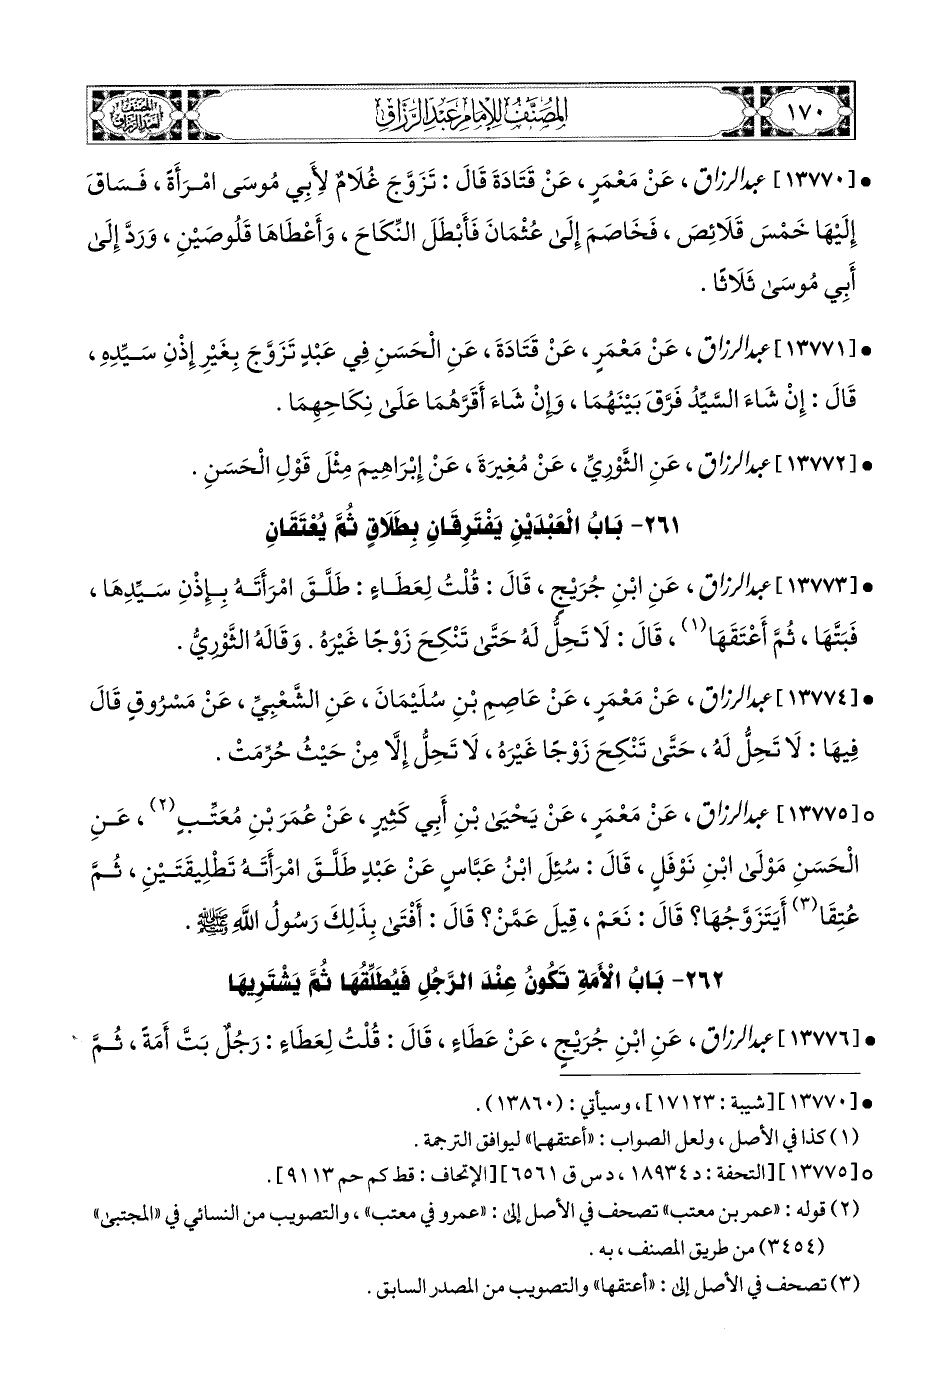 ١٧٠
المصنف للإمام عبد الرزاق
المصنف لعبد الرزاق
• [١٣٧٧٠] عبد الرزاق ، عَنْ مَعْمَرٍ ، عَنْ قَتَادَةَ قَالَ : تَزَوَّجَ غُلَامٌ لِأَبِي مُوسَى امْرَأَةً ، فَسَاقَ
إِلَيْهَا خَمْسَ قَلَائِصَ ، فَخَاصَمَ إِلَىٰ عُثْمَانَ فَأَبْطَلَ النِّكَاحَ ، وَأَعْطَاهَا قَلُوصَيْنِ ، وَرَدَّ إِلَىٰ
أَبِي مُوسَىٰ ثَلَاثًا .
• [١٣٧٧١] عبد الرزاق ، عَنْ مَعْمَرٍ ، عَنْ قَتَادَةَ ، عَنِ الْحَسَنِ فِي عَبْدٍ تَزَوَّجَ بِغَيْرِ إِذْنِ سَيِّدِهِ ،
قَالَ : إِنْ شَاءَ السَّيِّدُ فَرَّقَ بَيْنَهُمَا ، وَإِنْ شَاءَ أَقَرَّهُمَا عَلَىٰ نِكَاحِهِمَا .
• [١٣٧٧٢] عبد الرزاق ، عَنِ الثَّوْرِيِّ ، عَنْ مُغِيرَةَ ، عَنْ إِبْرَاهِيمَ مِثْلَ قَوْلِ الْحَسَنِ .
٢٦١- بَابُ الْعَبْدَيْنِ يَفْتَرِقَانِ بِطَلَاقٍ ثُمَّ يُعْتَقَانِ
• [١٣٧٧٣] عبد الرزاق ، عَنِ ابْنِ جُرَيْجٍ ، قَالَ : قُلْتُ لِعَطَاءٍ : طَلَّقَ امْرَأَتَهُ بِإِذْنِ سَيِّدِهَا ،
فَبَتَّهَا ، ثُمَّ أَعْتَقَهَا(١) ، قَالَ : لَا تَحِلُّ لَهُ حَتَّىٰ تَنْكِحَ زَوْجًا غَيْرَهُ . وَقَالَهُ الثَّوْرِيُّ .
• [١٣٧٧٤] عبد الرزاق ، عَنْ مَعْمَرٍ ، عَنْ عَاصِمِ بْنِ سُلَيْمَانَ ، عَنِ الشَّعْبِيِّ ، عَنْ مَسْرُوقٍ قَالَ
فِيهَا : لَا تَحِلُّ لَهُ ، حَتَّىٰ تَنْكِحَ زَوْجًا غَيْرَهُ ، لَا تَحِلُّ إِلَّا مِنْ حَيْثُ حُرِّمَتْ .
○ [١٣٧٧٥] عبد الرزاق ، عَنْ مَعْمَرٍ ، عَنْ يَحْيَىٰ بْنِ أَبِي كَثِيرٍ ، عَنْ عُمَرَ بْنِ مُعَتِّبٍ(٢) ، عَنِ
الْحَسَنِ مَوْلَى ابْنِ نَوْفَلٍ ، قَالَ : سُئِلَ ابْنُ عَبَّاسٍ عَنْ عَبْدٍ طَلَّقَ امْرَأَتَهُ تَطْلِيقَتَيْنِ ، ثُمَّ
عُتِقَا(٣) أَيَتَزَوَّجُهَا؟ قَالَ : نَعَمْ ، قِيلَ عَمَّنْ؟ قَالَ : أَفْتَىٰ بِذَلِكَ رَسُولُ اللَّهِ ﷺ .
٢٦٢- بَابُ الْأَمَةِ تَكُونُ عِنْدَ الرَّجُلِ فَيُطَلِّقُهَا ثُمَّ يَشْتَرِيهَا
• [١٣٧٧٦] عبد الرزاق ، عَنِ ابْنِ جُرَيْجٍ ، عَنْ عَطَاءٍ ، قَالَ : قُلْتُ لِعَطَاءٍ : رَجُلٌ بَتَّ أَمَةً ، ثُمَّ
• [١٣٧٧٠] [شيبة : ١٧١٢٣] ، وسيأتي : (١٣٨٦٠) .
(١) كذا في الأصل ، ولعل الصواب : «أعتقهما» ليوافق الترجمة .
○ [١٣٧٧٥] [التحفة : د ١٨٩٣٤ ، د س ق ٦٥٦١] [الإتحاف : قط كم حم ٩١١٣] .
(٢) قوله : «عمر بن معتب» تصحف في الأصل إلى : «عمرو في معتب» ، والتصويب من النسائي في «المجتبى»
(٣٤٥٤) من طريق المصنف ، به .
(٣) تصحف في الأصل إلى : «أعتقها» والتصويب من المصدر السابق .